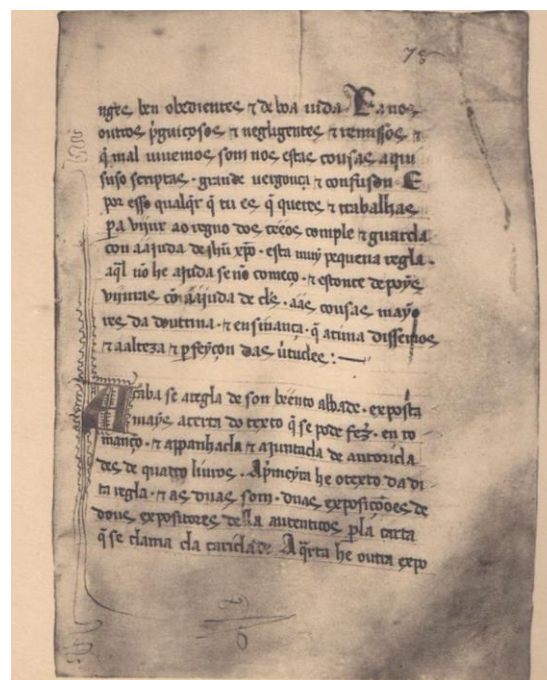 73
nges ben obedientes ⁊ de boa uida. E a nos
outros p̃guiçosos ⁊ negligentes ⁊ remissos ⁊
q̃ mal uiuemos som nos estas cousas aqui
suso scriptas. grande uergonça ⁊ confuson E
por esso qualq̃r q̃ tu es q̃ queres ⁊ trabalhas
p̃a vĩjr ao regno dos çẽeos comple ⁊ guarda
con a aiuda de jhũ xp̃o. esta muy pequena regla.
aq̃l nõ he aiuda se nõ começo. ⁊ estonce depoys
vijnras cõ a aiuda de ds̃. áás cousas mayo
res da doutrina. ⁊ ensinança. q̃ acima dissemos
⁊ a alteza ⁊ p̃feyçon das ũtudes :—
Acaba se a regla de son bẽeito abbade. exposta
mays acerta do texto q̃ se pode fez̃. en ro
manço. ⁊ apanhada ⁊ aiuntada de autorida
des de quatro liuros. A p̃meyra he o texto da di
ta regla. ⁊ as duas som. duas exposições de
dous expositores della autenticos p̃la carta
q̃ se clama da caridade. A q̃rta he outra expo